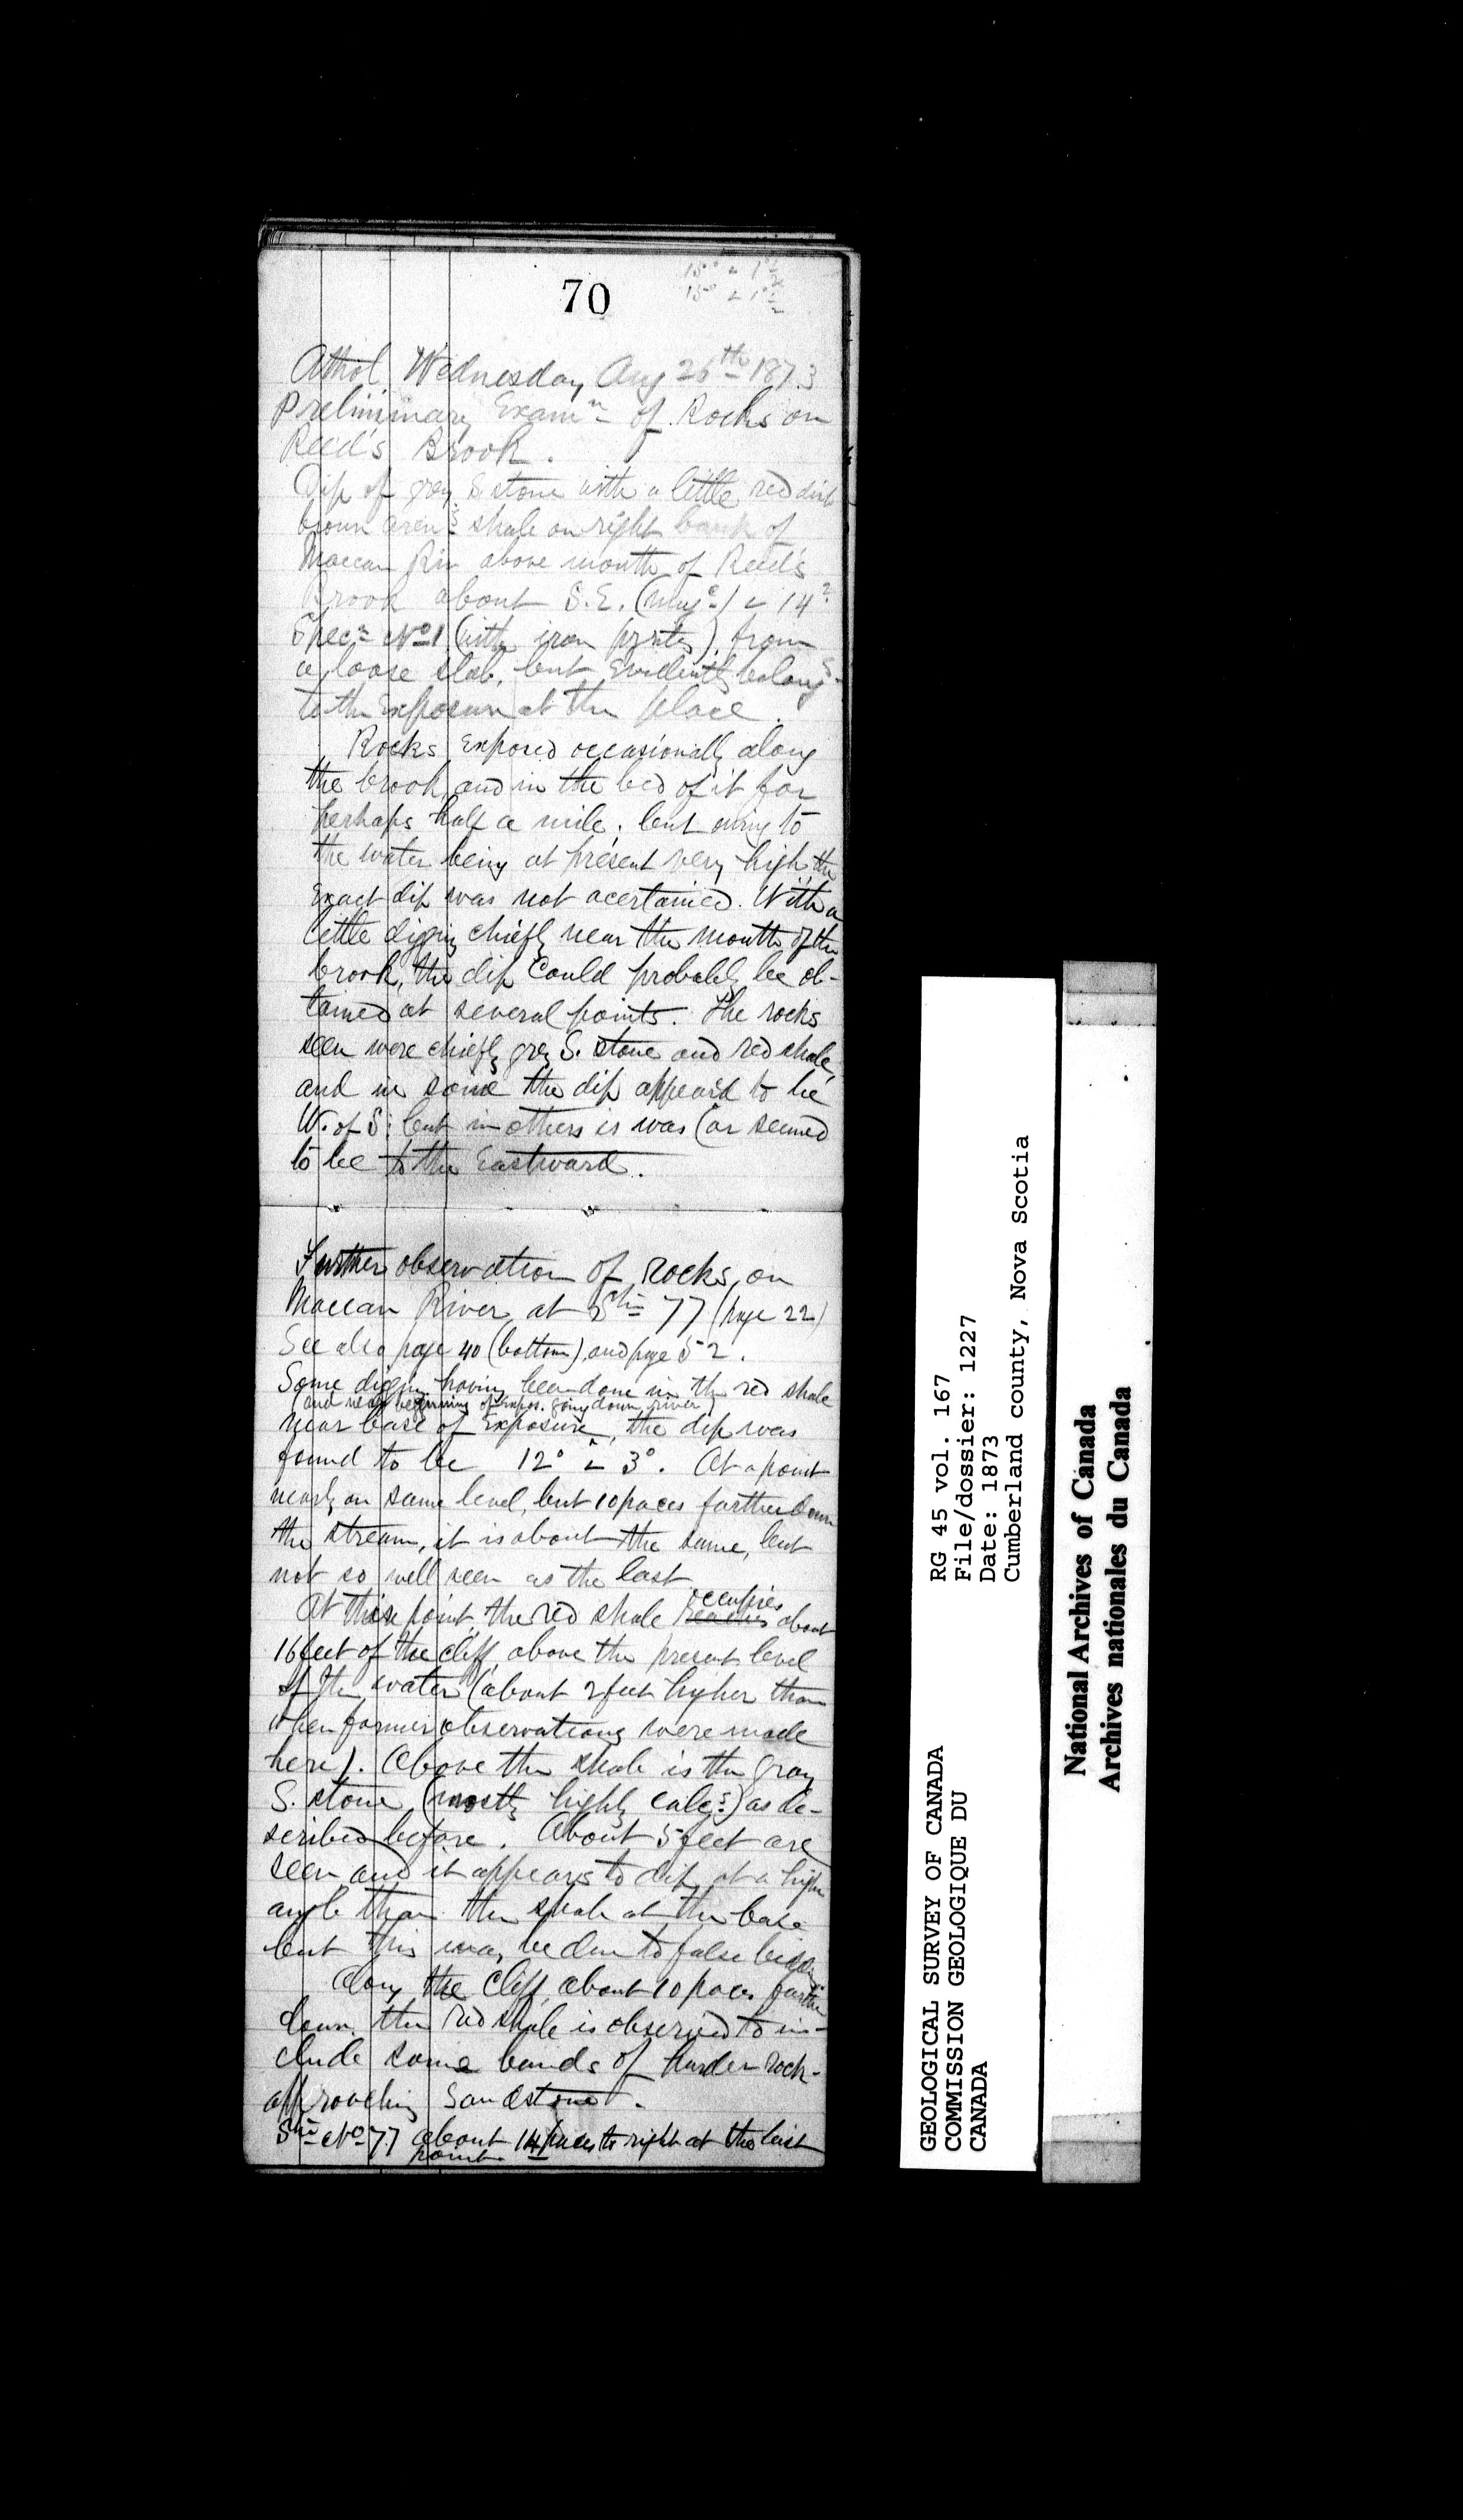 70
Athol Wednesday Aug 26th 1873
Preliminary Examn of Rocks on
Reed's Brook.
Dip of grey S. stone with a little red dish
brown arens shale on right bank of
Maccan Riv above mouth of Reed's
Brook about S.E. (mage) ∠ 14°
Specn No 1 (with iron pyrites), from
a loose slab, but Evidently belongs
to the Exposure at the place.
Rocks exposed occasionally along
the brook, and in the bed of it for
perhaps half a mile; but owing to
the water being at present very high the
Exact dip was not acertained. With a
little digging chiefly near the mouth of the
brook, the dip could probably be ob-
tained at several points. The rocks
seen were chiefly grey S. stone and red shale,
and in some the dip appear'd to be
W. of S; but in others is was (or seemed
to be to the Eastward.
Further observation of rocks, on
Maccan River at Stn 77 (page 22)
See also page 40 (bottom), and page 52.
Some digging having been done in the red shale
(and near beginning of expos. going down river)
near base of Exposure, the dip was
found to be 12° ∠ 3°. At a point
nearly on same level, but 10 paces further down
the stream, it is about the same, but
not so well seen as the last
occupies
At this point, the red shale reaches about
16 feet of the cliff, above the present level
of the water (about 2 feet higher than
when former observations were made
here). Above the shale is the gray
S. stone (mostly highly calcs) as de-
scribed before. About 5 feet are
seen and it appears to dip at a high
angle than the shale at the base
but this may be due to false bedding
Along the Cliff, about 10 paces further
down the red shale is observed to in-
clude some bands of harder rock-
approaching Sandstone.
Stn No 77 about 14 paces to right at the last
point.
GEOLOGICAL SURVEY OF CANADA
COMMISSION GEOLOGIQUE DU
CANADA
RG 45 vol. 167
File/dossier: 1227
Date: 1873
Cumberland county, Nova Scotia
National Archives of Canada
Archives nationales du Canada